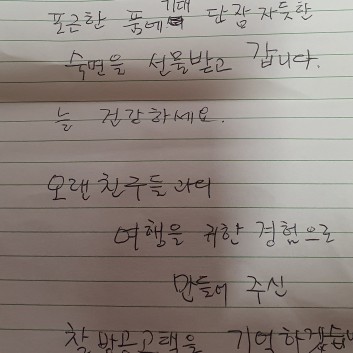 포근한 품에 기대 단잠자듯한
숙면을 선물받고 갑니다.
늘 건강하세요.
오랜친구들과의
여행을 귀한 경험으로
만들어 주신
기억하겠습